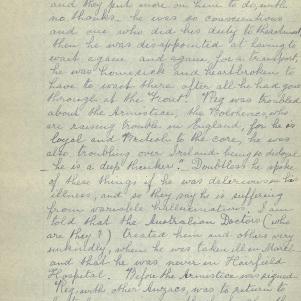 and they put more on him to do, with
no thanks. he was so conscientious
and one who did his duty to the utmost
then he was disappointed at having to
wait again and again for a transport,
he was homesick and heartbroken to
have to wait there after all he had gone
through at the Front. Reg was troubled
about the Armistice, the Bolshevics, who
are raising trouble in England, for he is
loyal and British to the core, he was
also troubling over Ireland being so disloyal
he is a deep thinker". Doubtless he spoke
of these things if he was delerious in his
illness, and so they say he is suffering
from various hallucinations. I am
told that the Australian Doctors (who
are they?) treated him and others very
unkindly, when he was taken ill on March
and that he was never in Harefield
Hospital. Before the Armistice was signed
Reg, with other Anzacs, was to return to